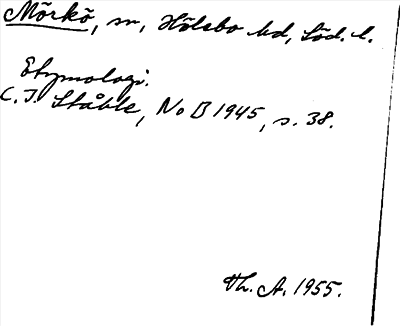 Mörkö, sn, Hölebo hd, Söd. l.
Etymologi.
C. I. Ståhle, NoB 1945, s. 38.
Th. A. 1955.